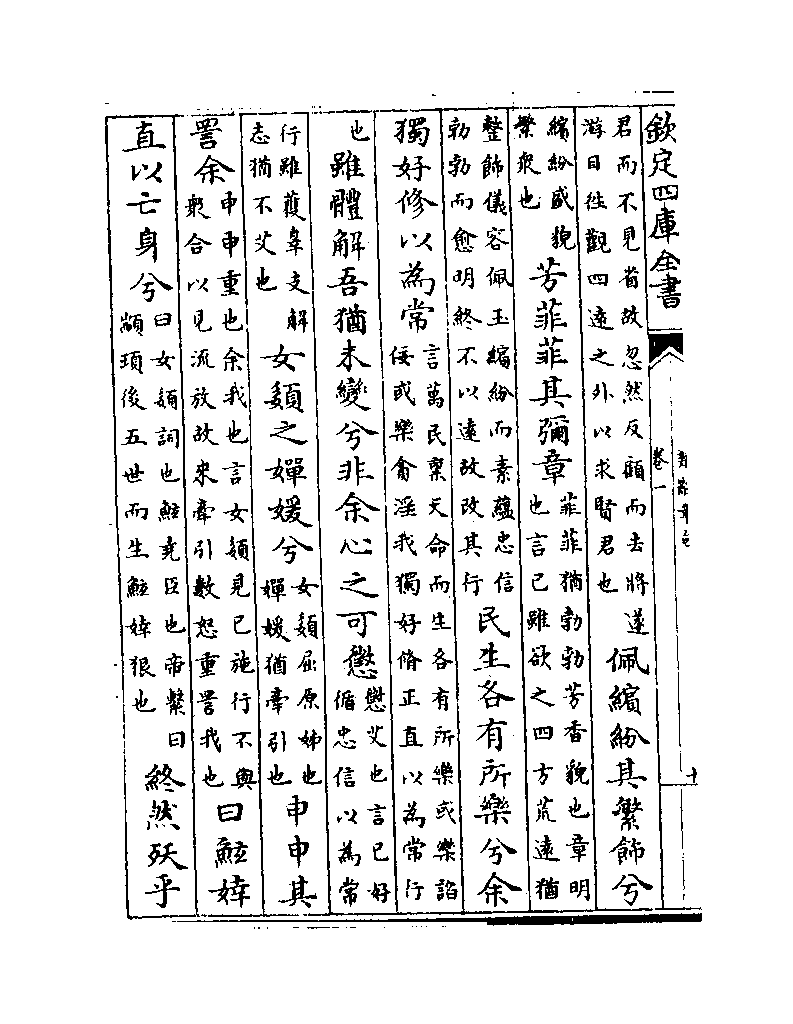 欽定四庫全書
卷一
楚辭章句
十
君而不見省故忽然反顧而去將遂
游目往觀四逺之外以求賢君也
佩繽紛其繁飾兮
繽紛盛貌
繁衆也
芳菲菲其彌章
菲菲猶勃勃芳香貌也章明
也言己雖欲之四方荒逺猶
整飾儀容佩玉繽紛而素蘊忠信
勃勃而愈明終不以逺故改其行
民生各有所樂兮余
獨好修以為常
言萬民稟天命而生各有所樂或樂諂
佞或樂貪淫我獨好脩正直以為常行
也
雖體解吾猶未變兮非余心之可懲
懲艾也言己好
循忠信以為常
行雖獲辠支解
志猶不艾也
女嬃之嬋媛兮
女嬃屈原姊也
嬋媛猶牽引也
申申其
詈余
申申重也余我也言女嬃見己施行不與
衆合以見流放故來牽引數怒重詈我也
曰鮌婞
直以亡身兮
曰女嬃詞也鮌堯臣也帝繫曰
顓頊後五世而生鮌婞狠也
終然殀乎